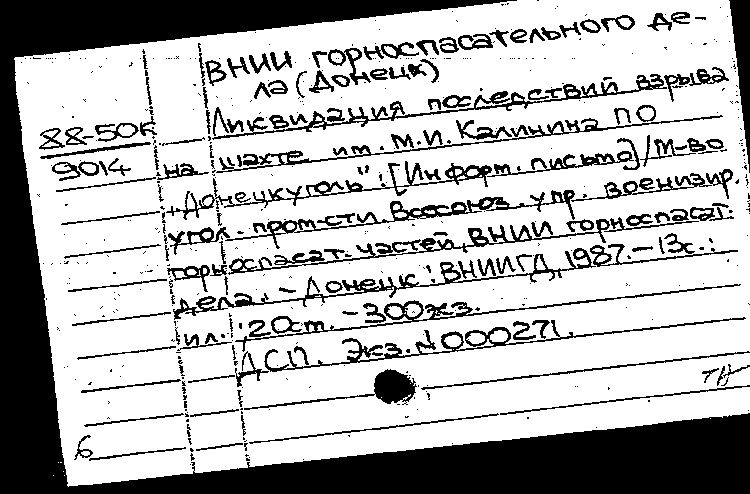 ВНИИ горноспасательного де-
ла (Донецк)
88-50к
9014
Ликвидация последствий взрыва
на шахте им. М.И. Калинина ПО
„Донецкуголь": [Информ. письмо]/М-во
угол. пром-сти. Всесоюз. упр. военизир.
горноспасат. частей, ВНИИ горноспасат.
дела. – Донецк: ВНИИГД, 1987. – 13с.:
ил.; 20см. – 300экз.
ДСП. Экз. № 000271.
6